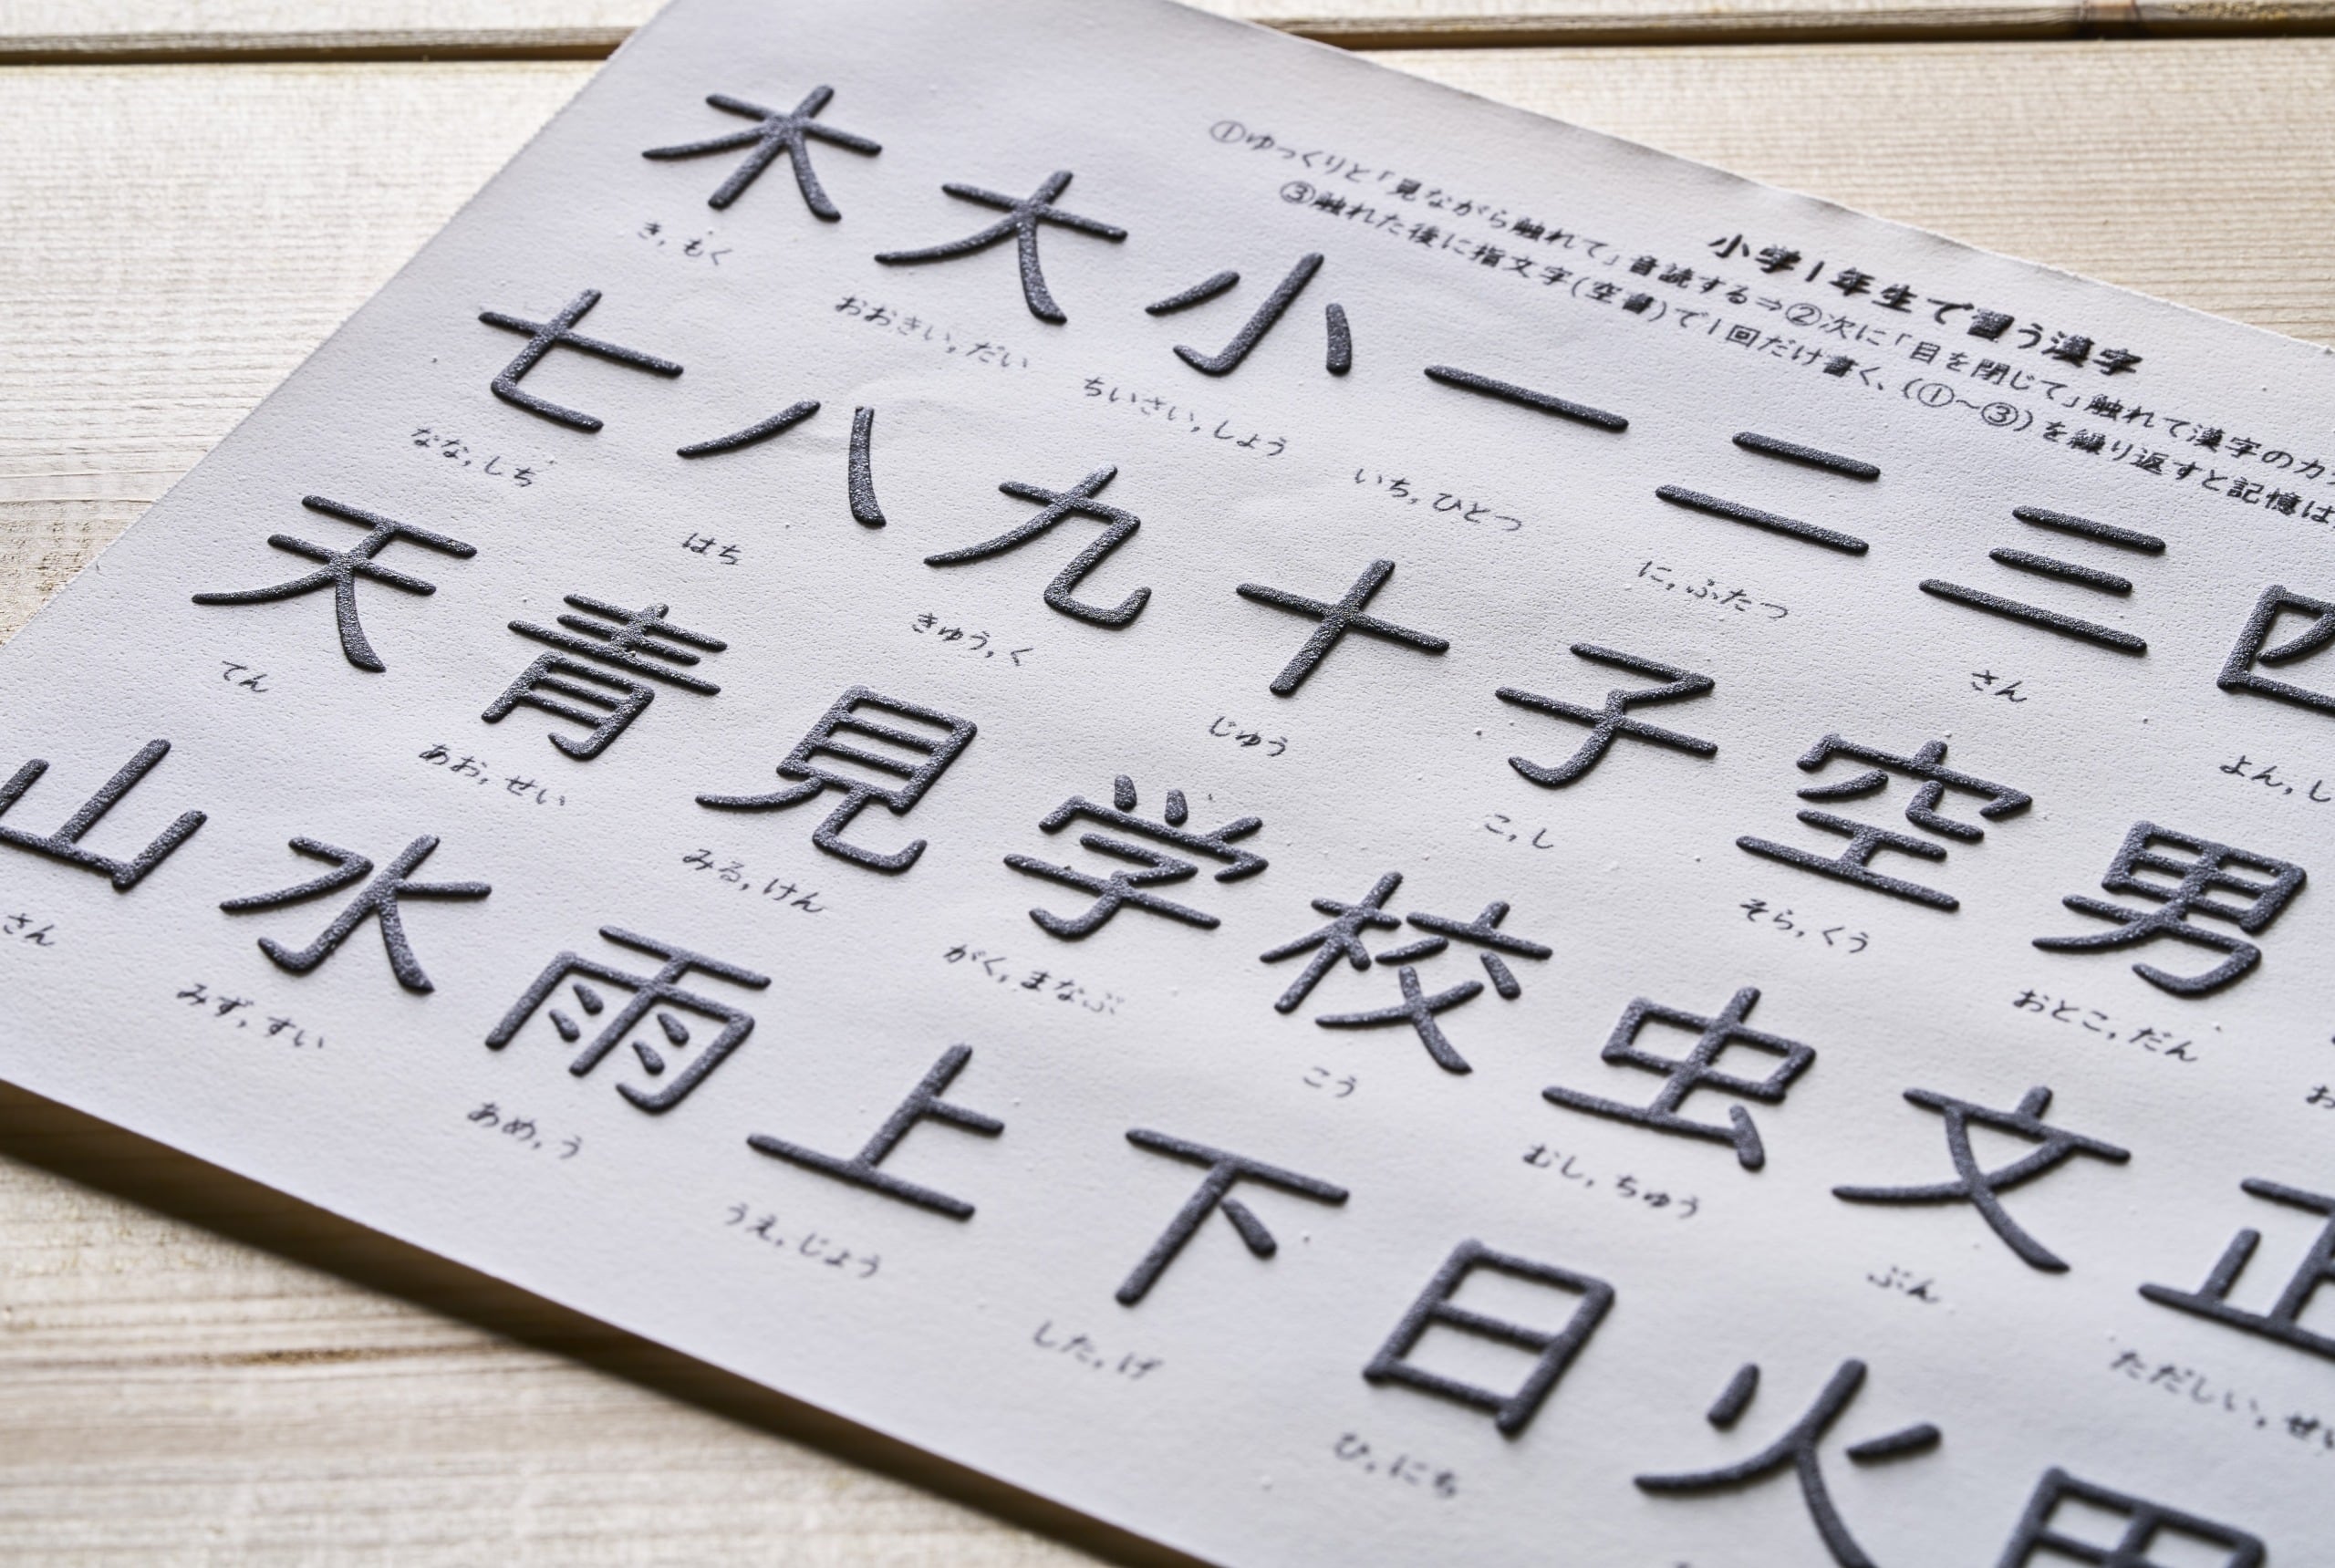 小学1年生で習う漢字
①ゆっくりと「見ながら触れて」音読する⇒②次に「目を閉じて」触れて漢字のカ
③触れた後に指文字(空書)で1回だけ書く、(①~③)を繰り返すと記憶は
木 大 小 一 二 三 四
き,もく おおきい,だい ちいさい,しょう いち,ひとつ に,ふたつ さん よん,し
七 八 九 十 子 空 男
なな,しち はち きゅう,く じゅう こ,し そら,くう おとこ,だん
天 青 見 学 校 虫 文 正
てん あお,せい みる,けん がく,まなぶ こう むし,ちゅう ぶん ただしい,せい
山 水 雨 上 下 日 火
さん みず,すい あめ,う うえ,じょう した,げ ひ,にち